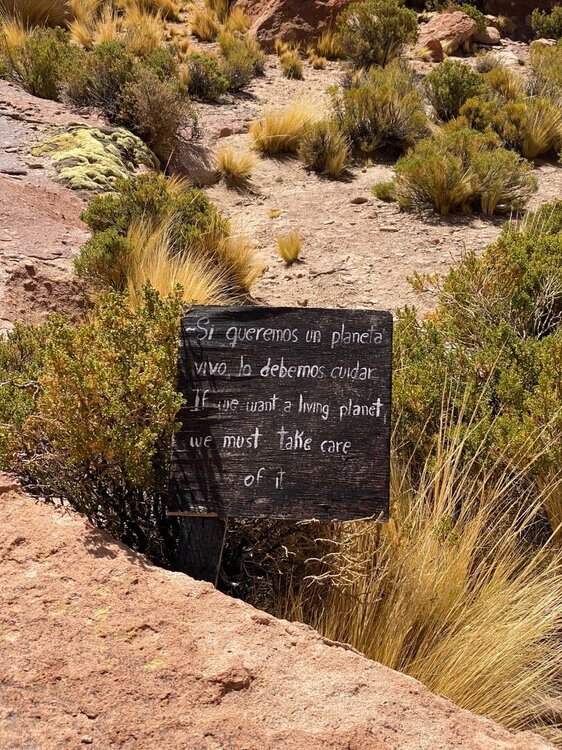 -Si queremos un planeta
vivo, lo debemos cuidar
If we want a living planet,
we must take care
of it